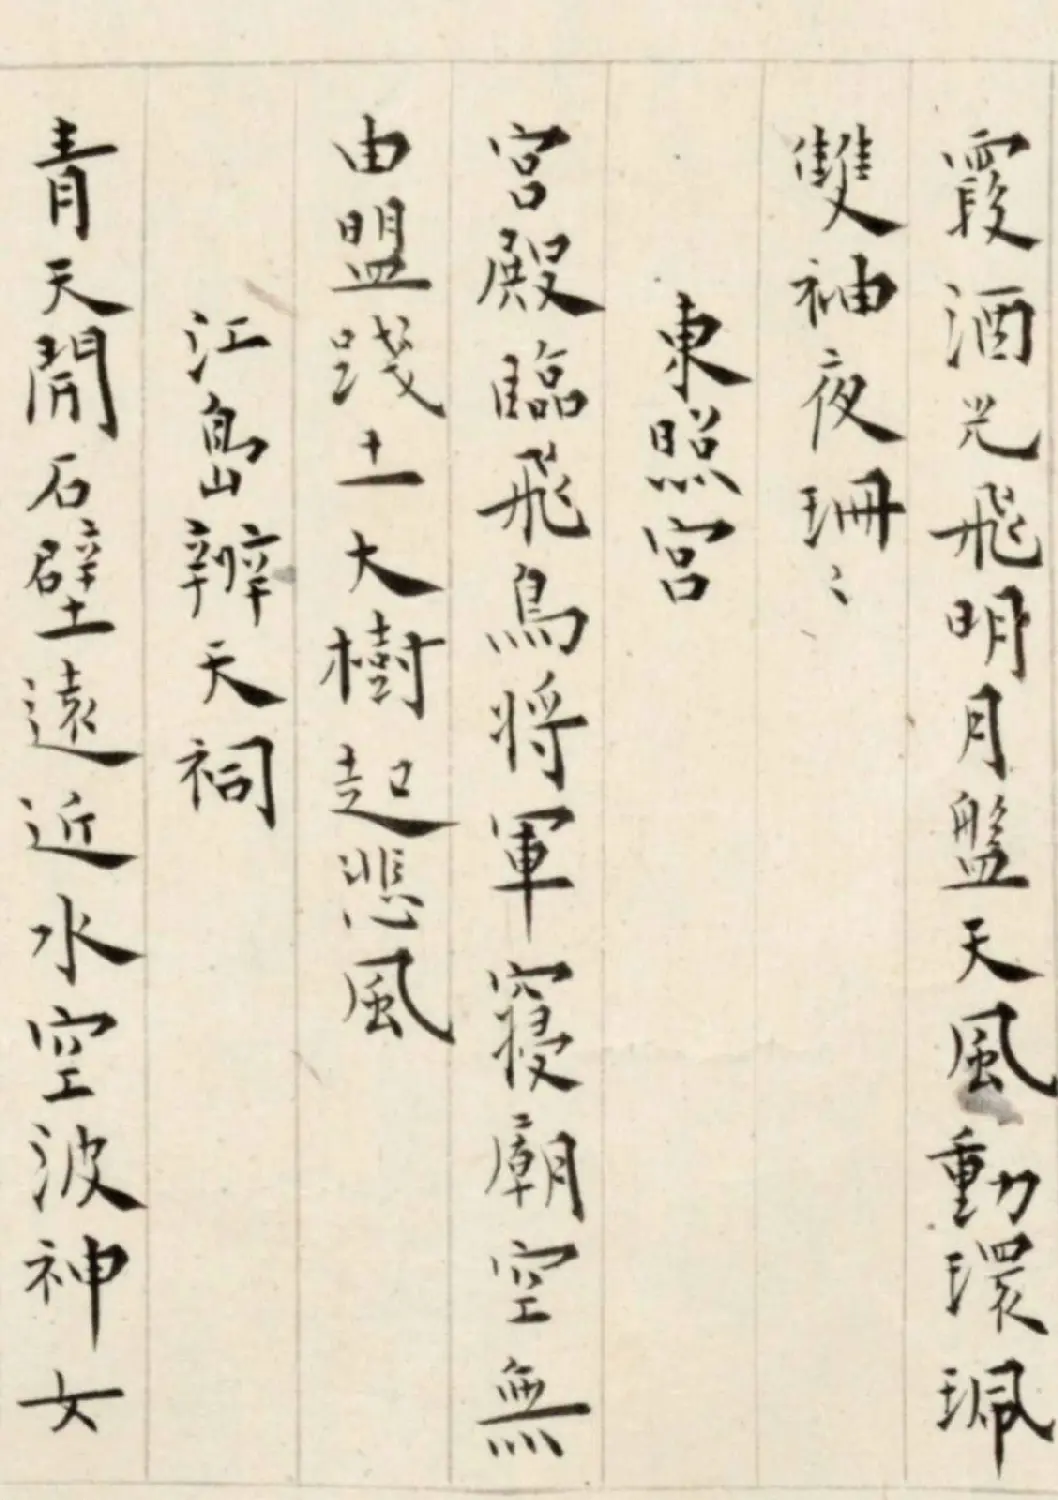 霞酒光飛明月盤天風動環珮
雙袖夜珊〻
東照宮
宮殿臨飛鳥將軍寢廟空無
由盟踐土大樹起悲風
江島辨天祠
青天開石壁遠近水空波神女